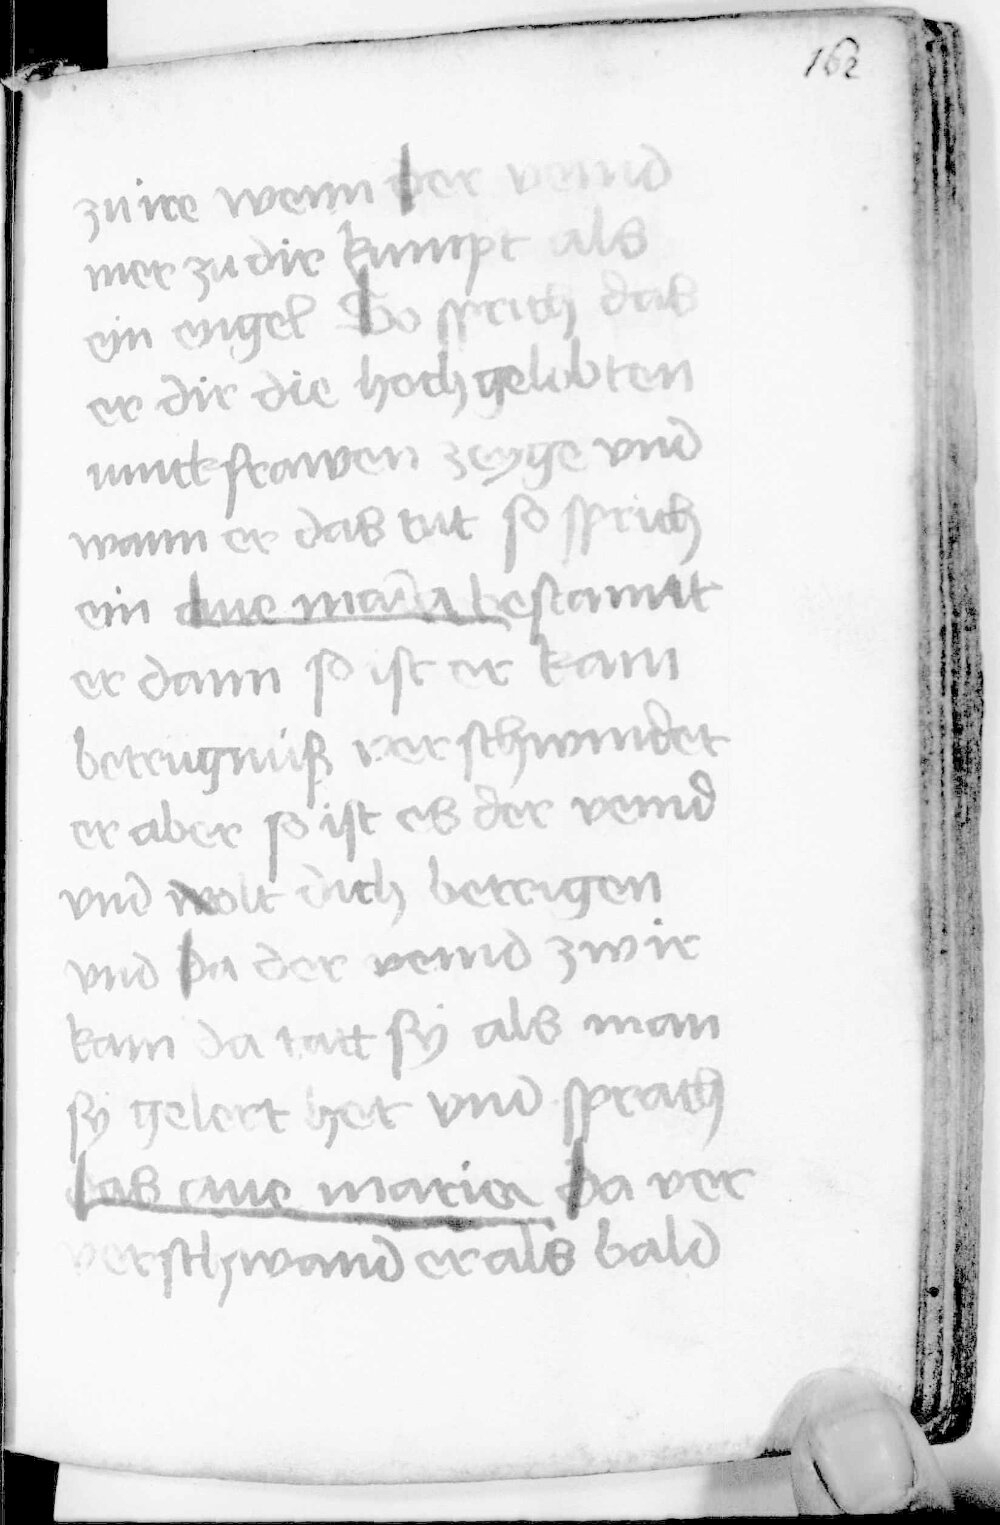 162
zu ire wenn der veind
mer zu dir kumpt als
ein engel So sprich das
er dir die hochgelobten
iunckfrawen zeyge vnd
wann er das tut so sprich
ein aue maria bestamtt
er dann so ist er kain
betrügnüß verschwindet
er aber so ist es der veind
vnd wolt dich betrigen
vnd da der veind zwir
kam da tatt sÿ als man
sÿ gelert het vnd sprach
das aue maria da ver
verschwand er als bald